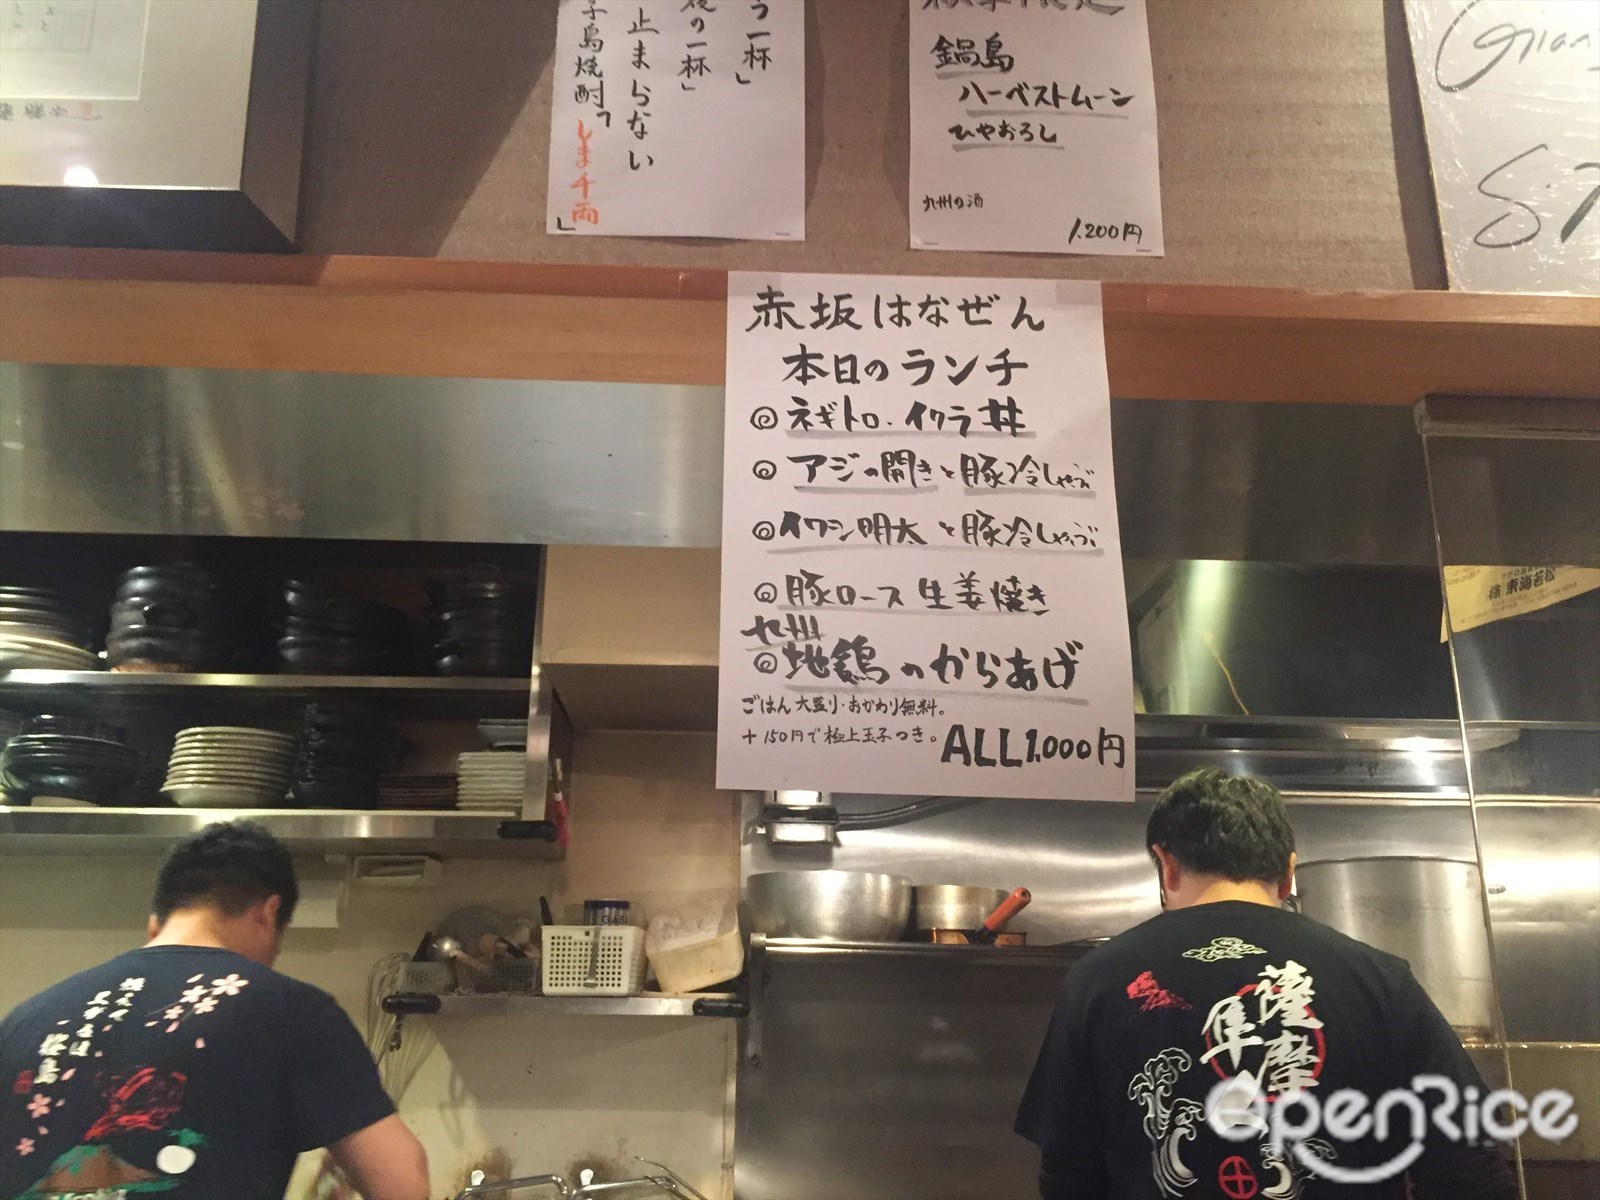 う一杯」
後の一杯」
止まらない
子島焼酎「しま千両」
鍋島
ハーベストムーン
ひやおろし
九州の酒
1,200円
赤坂はなぜん
本日のランチ
◎ネギトロ・イクラ丼
◎アジの開きと豚冷しゃぶ
◎イワシ明太と豚冷しゃぶ
◎豚ロース生姜焼き
九州
◎地鶏のからあげ
ごはん大盛り・おかわり無料。
+150円で極上玉子つき。
ALL1,000円
東海若松
桜島
薩摩
隼人
OpenRice